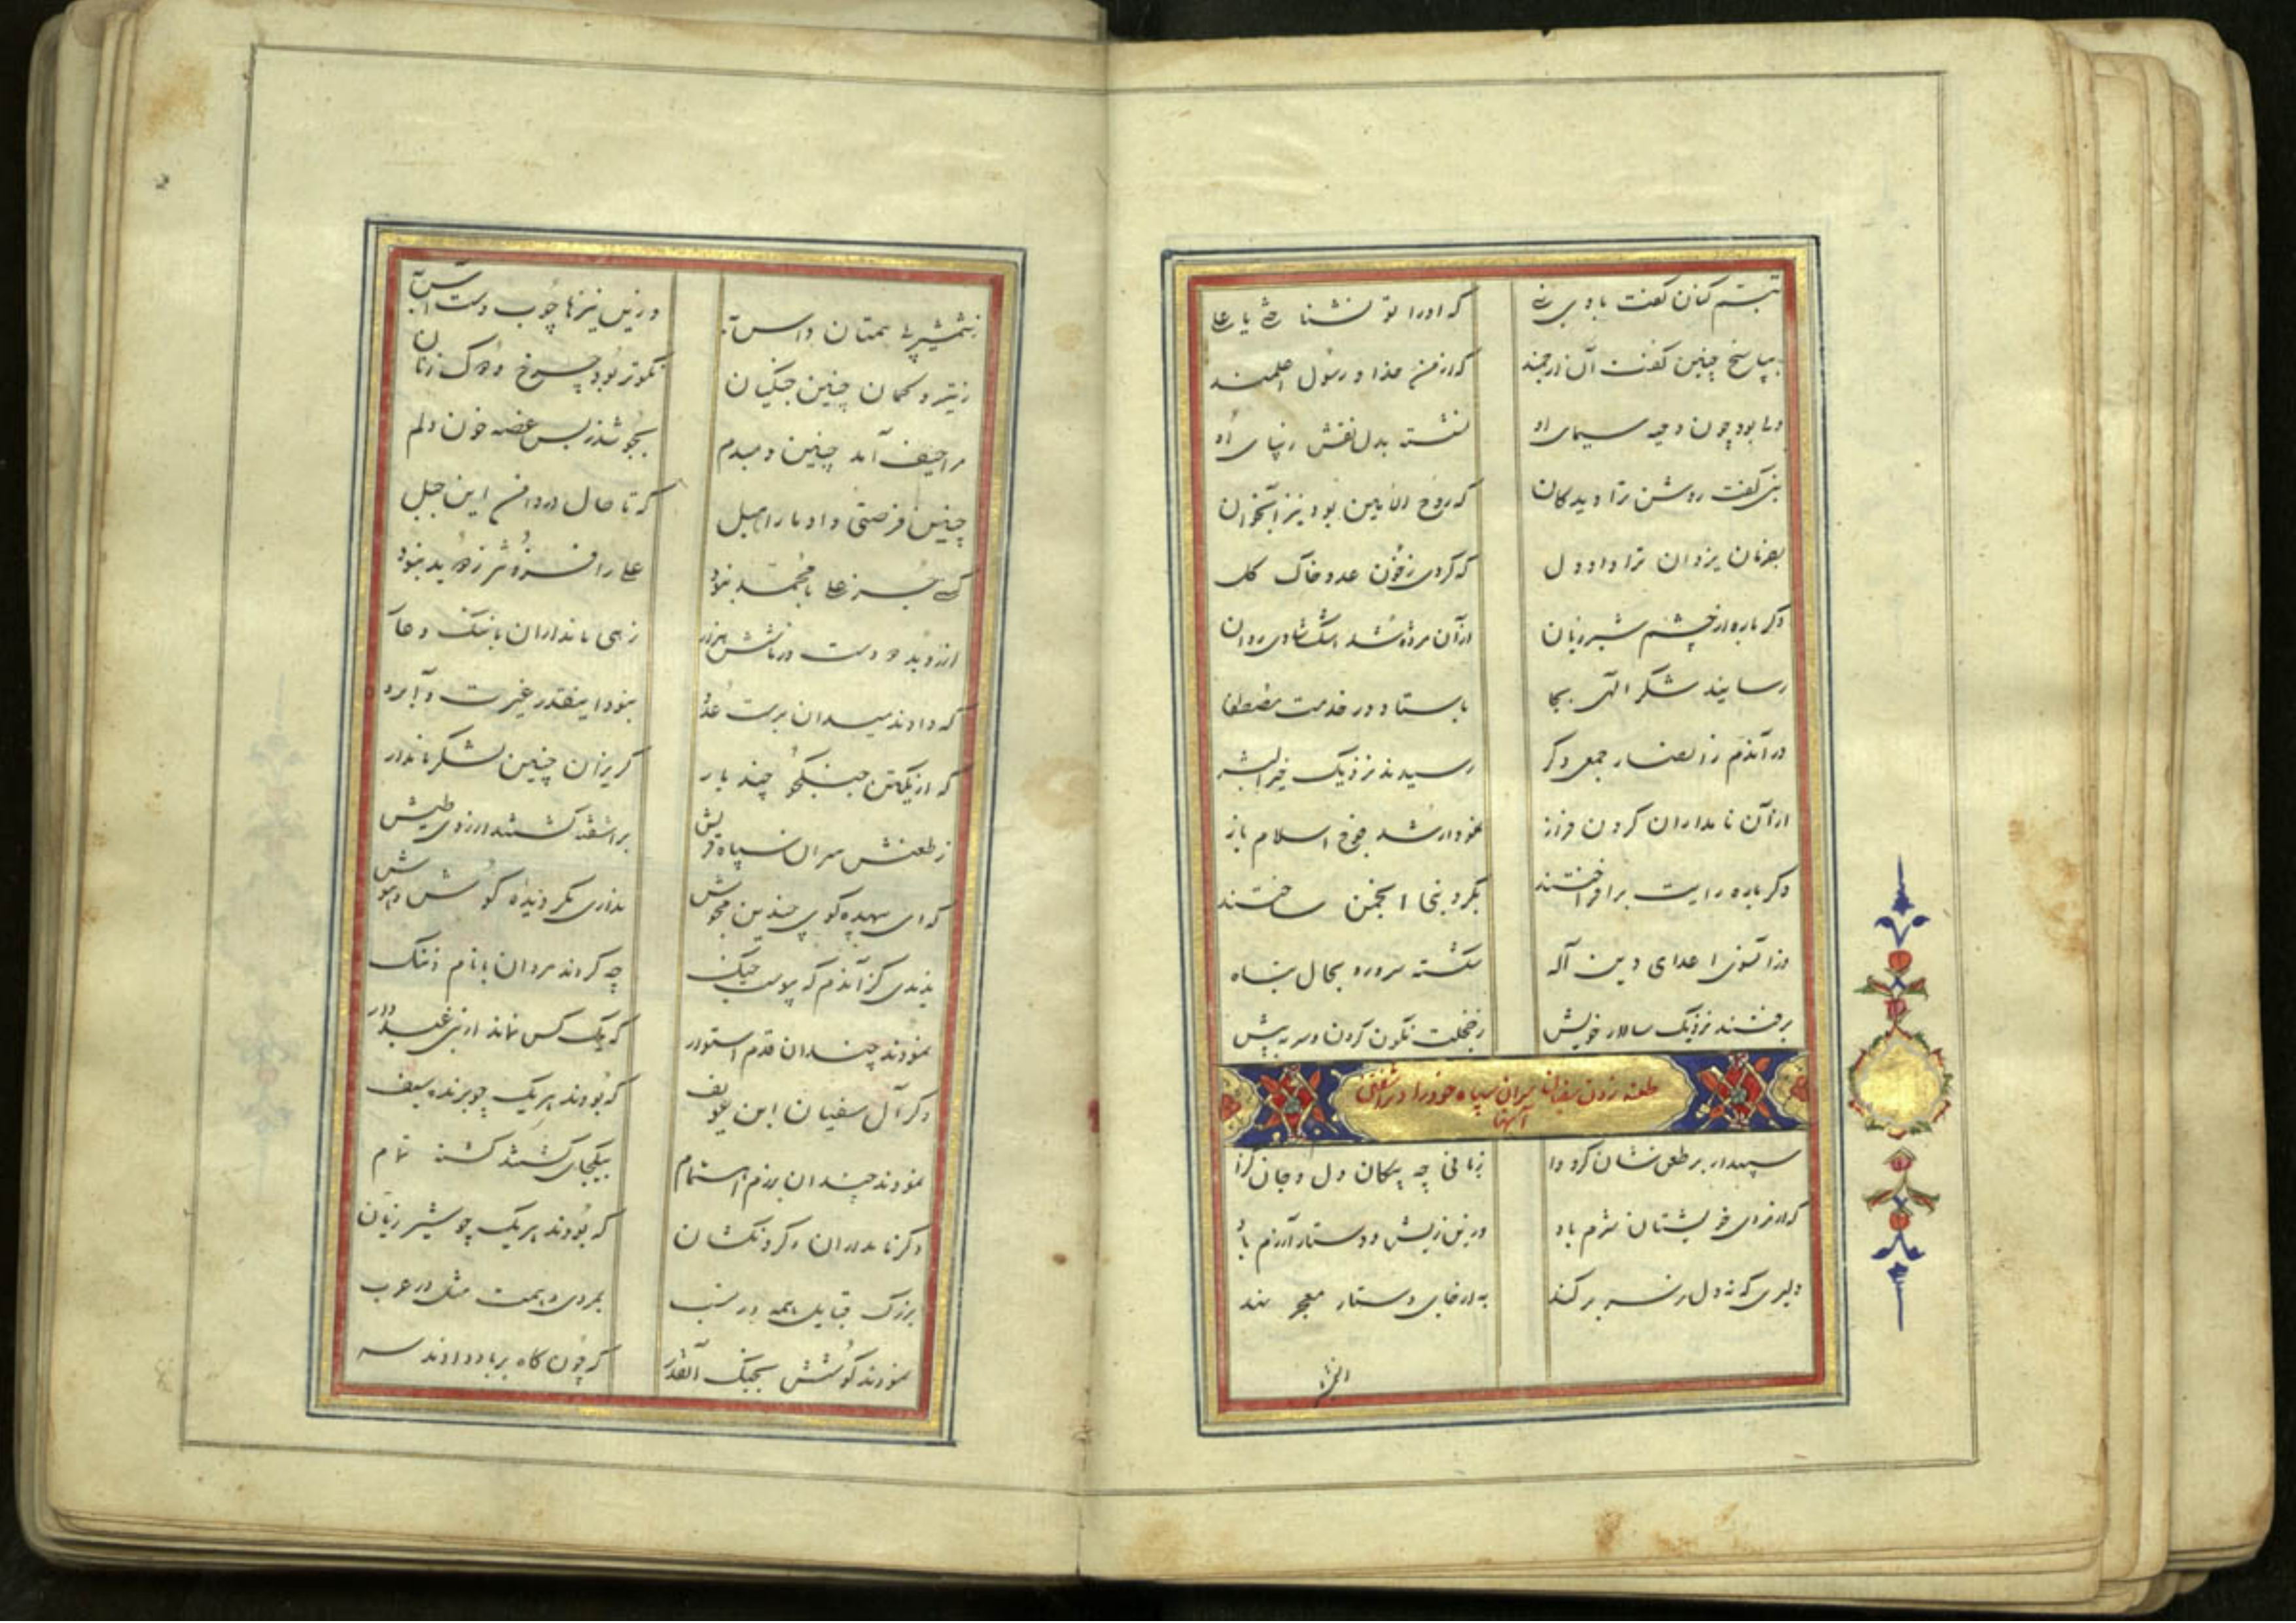 تبسم کنان گفت با وی نبی که او را تو نشناختی یا علی
بپاسخ چنین گفت آن ارجمند که از من خدا و رسول اعلمند
ولی بود چون دحیه سیمای او نشسته بدل نقش زیبای او
نبی گفت روشن ترا دیدگان که روح الامین بود نیز آنخوان
بفرمان یزدان ترا داد دل که کردی ز خون عدو خاک گل
دگر باره از چشم شیر ژیان از آن مژده شد اشک شادی روان
رسانید شکر الهی بجا باستاد در خدمت مصطفی
در آندم ز انصار جمعی دگر رسیدند نزدیک خیر البشر
از آن نامداران گردن فراز نمودار شد فوج اسلام باز
دگر باره رایت برافراختند بگرد نبی انجمن ساختند
وز آنسوی اعدای دین اله شکسته سر و رو بحال تباه
برفتند نزدیک سالار خویش ز خجلت نگون کردن و سر به پیش
طعنه زدن سفیان سران سپاه خود را و برآشفتن
آنها
سپهدار بر طعن شان کرد وا زبانی چه پیکان دل و جان گزا
که از روی خویشتان شرم باد وزین ریش و دستار آزرم باد
دلیری که نه دل ز سر بر کند به از جای دستار معجر بند
ز شمشیرها همتان داس به وزین نیزها چوب دست آس به
ز تیر و کمان چنین جنگیان نکوتر بود چرخ و دوک زنان
مرا حیف آید چنین دمبدم بجوشد ز بس غصه خون دلم
چنین فرصتی داد ما را هبل که تا حال در دامن این جبل
کسی جز علی با محمد نبود علی را فزونتر ز دو ید نبود
از دو ید دو دست در شش هزار زهی نامداران با ننگ و عار
که دادند میدان بدست عدو نبود اینقدر غیرت و آبرو
که از یکتن جنگجو چند بار گریزان چنین لشکر نامدار
ز طعنش سران سپاه قریش برآشفته گشتند از روی طیش
که ای بیهده گوی چندین مجوش نداری مگر دیده و گوش و هوش
ندیدی کز آندم که پیوست جنگ چه کردند مردان با نام و ننگ
نمودند چندان قدم استوار که یک کس نماند از بنی عبد دار
دگر آل سفیان ابن عویف که بودند هر یک چو برنده سیف
نمودند چندان برزم اهتمام بیکجای گشتند کشته تمام
دگر نامداران و گردنکشان که بودند هر یک چو شیر ژیان
بزرگ قبایل همه در نسب بمردی و همت مثل در عرب
نمودند کوشش بجنگ آنقدر که چون کاه بر باد دادند سر